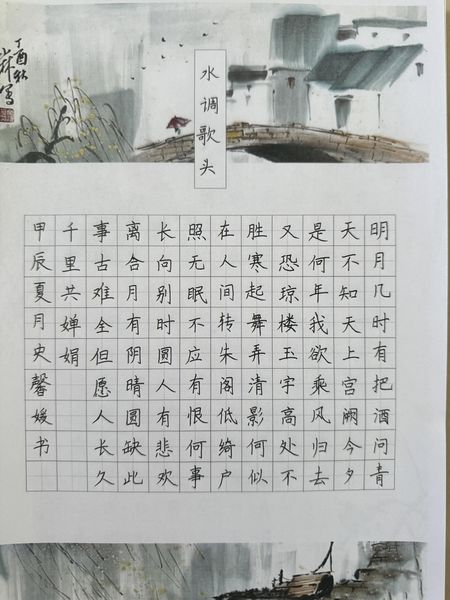 水调歌头
明月几时有把酒问青
天不知天上宫阙今夕
是何年我欲乘风归去
又恐琼楼玉宇高处不
胜寒起舞弄清影何似
在人间转朱阁低绮户
照无眠不应有恨何事
长向别时圆人有悲欢
离合月有阴晴圆缺此
事古难全但愿人长久
千里共婵娟
甲辰夏月史馨媛书
丁酉秋